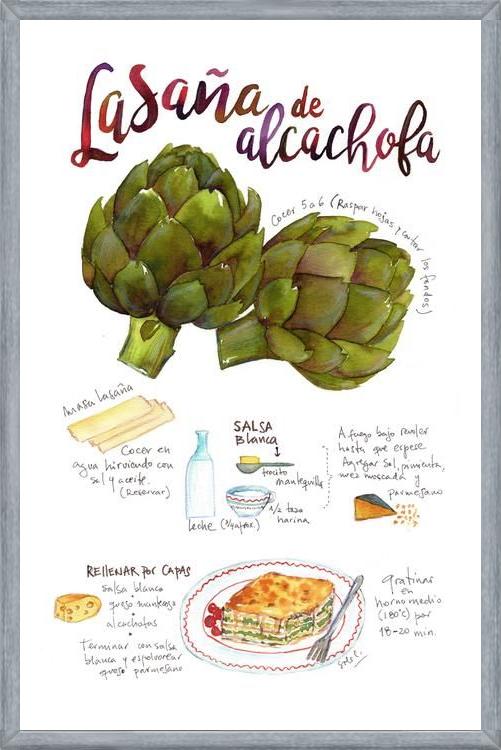 Lasaña de
alcachofa
Cocer 5 a 6 (Raspar hojas y cortar los fondos)
masa lasaña
Cocer en
agua hirviendo con
sal y aceite.
(Reservar)
SALSA
Blanca
trocito
mantequilla
leche (3/4 aprox.)
1/2 taza
harina
A fuego bajo revolver
hasta que espese
Agregar sal, pimienta,
nuez moscada y
parmesano
RELLENAR POR CAPAS
Salsa blanca
queso mantecoso
alcachofas
Terminar con salsa
blanca y espolvorear
queso parmesano
gratinar
en
horno medio
(180°C) por
18-20 min.